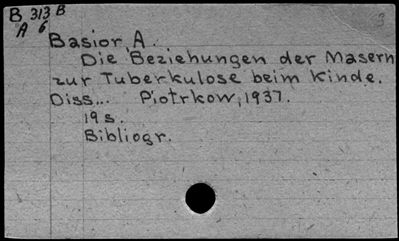 B 313 B
A 6
3
Basior, A.
Die Beziehungen der Masern
zur Tuberkulose beim Kinde.
Diss... Piotrkow, 1937.
19 s.
Bibliogr.